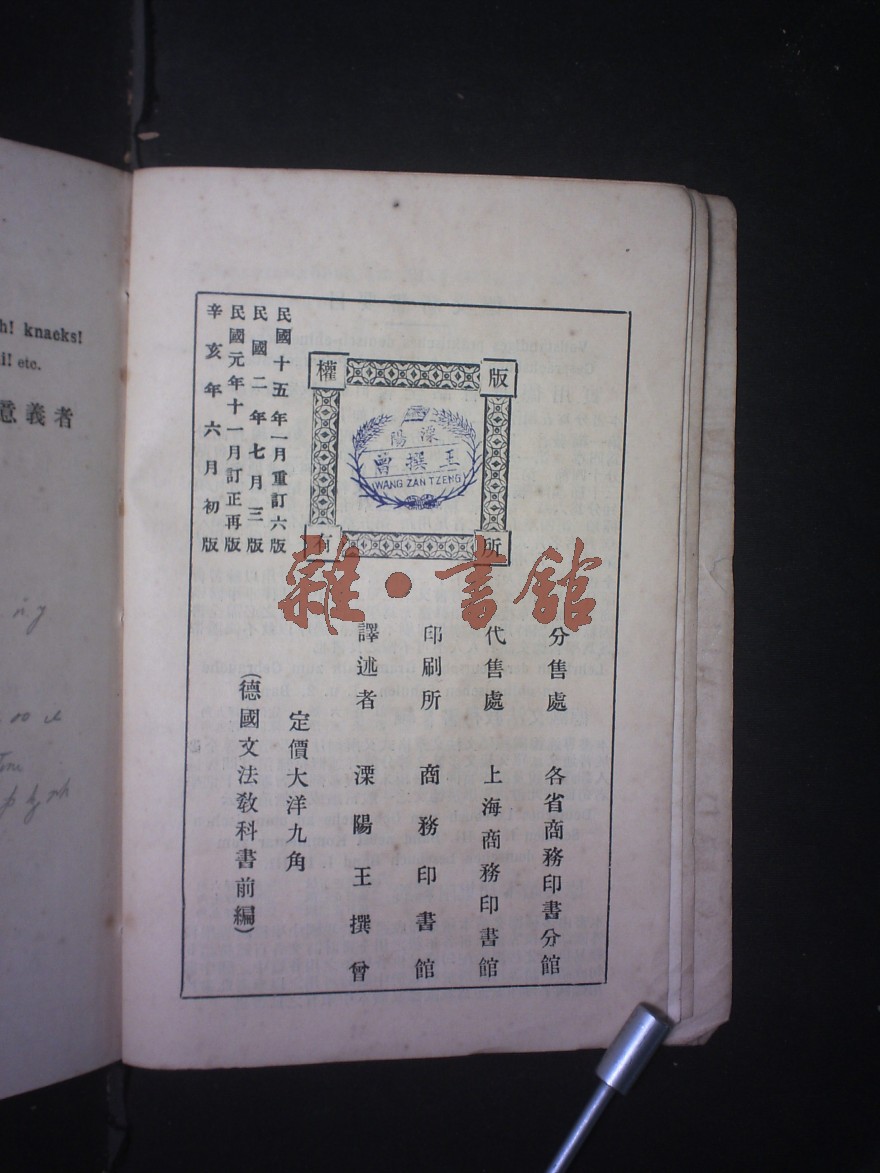 knacks!
etc.
意義者
版權所有
溧陽
王撰曾
WANG ZAN TZENG
民國十五年一月重訂六版
民國二年七月三版
民國元年十一月訂正再版
辛亥年六月初版
雜·書館
分售處 各省商務印書分館
代售處 上海商務印書館
印刷所 商務印書館
譯述者 溧陽王撰曾
定價大洋九角
(德國文法教科書前編)